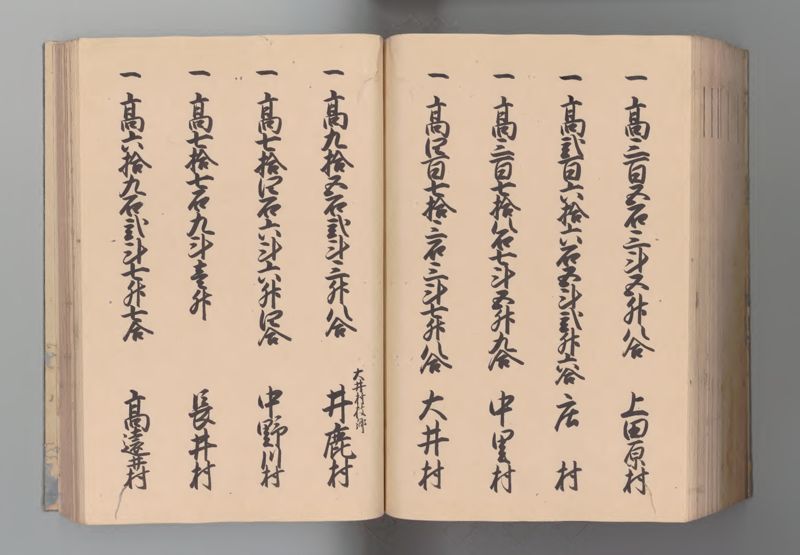 一 高三百五石三斗五升八合 上田原村
一 高弐百六拾六石五斗弐升六合 庄村
一 高三百七拾八石七斗五升九合 中里村
一 高四百七拾三石三斗七升八合 大井村
大井村枝郷
一 高九拾五石弐斗三升八合 井鹿村
一 高七拾四石六斗六升四合 中野川村
一 高七拾七石九斗壱升 長井村
一 高六拾九石弐斗七升七合 高遠井村